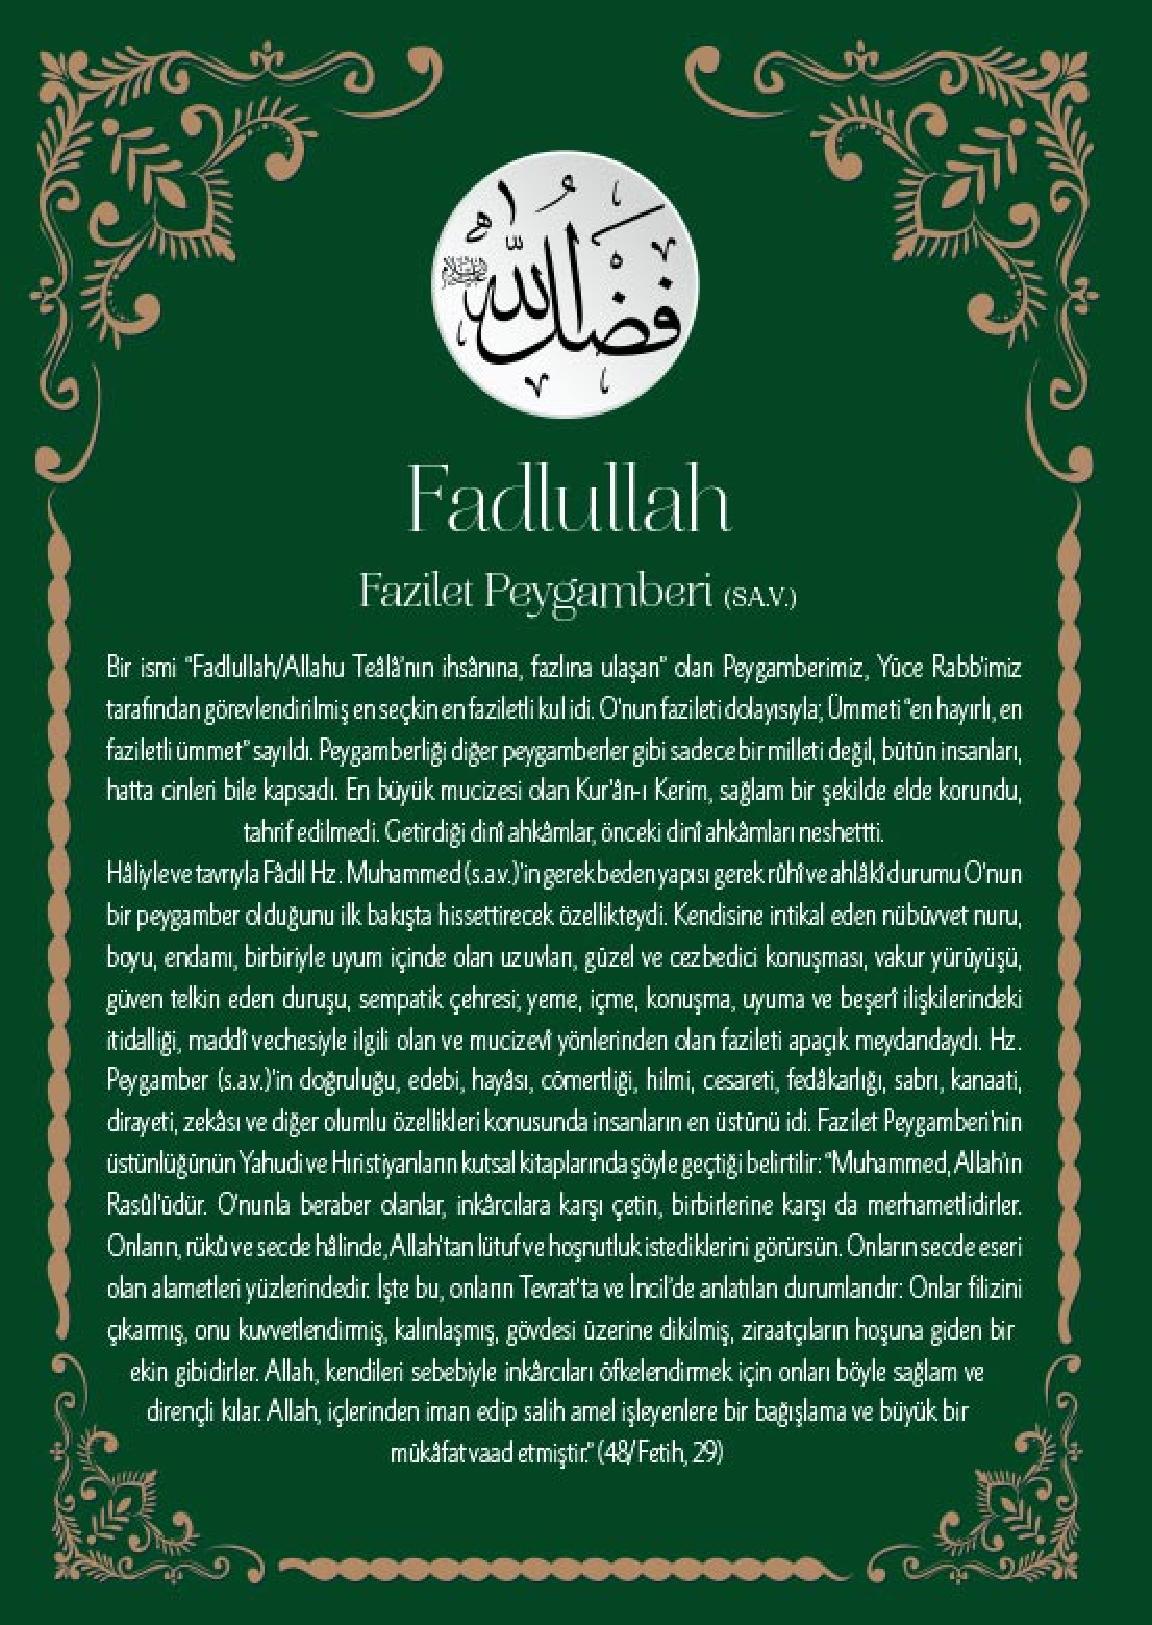 فَضْلُ اللهِ
عليه السلام
Fadlullah
Fazilet Peygamberi (S.A.V.)
Bir ismi “Fadlullah/Allahu Teâlâ’nın ihsânına, fazlına ulaşan” olan Peygamberimiz, Yüce Rabb’imiz
tarafından görevlendirilmiş en seçkin en faziletli kul idi. O’nun fazileti dolayısıyla; Ümmeti “en hayırlı, en
faziletli ümmet” sayıldı. Peygamberliği diğer peygamberler gibi sadece bir milleti değil, bütün insanları,
hatta cinleri bile kapsadı. En büyük mucizesi olan Kur’ân-ı Kerim, sağlam bir şekilde elde korundu,
tahrif edilmedi. Getirdiği dinî ahkâmlar, önceki dinî ahkâmları neshettti.
Hâliyle ve tavrıyla Fâdıl Hz. Muhammed (s.a.v.)’in gerek beden yapısı gerek rûhî ve ahlâkî durumu O’nun
bir peygamber olduğunu ilk bakışta hissettirecek özellikteydi. Kendisine intikal eden nübüvvet nuru,
boyu, endamı, birbiriyle uyum içinde olan uzuvları, güzel ve cezbedici konuşması, vakur yürüyüşü,
güven telkin eden duruşu, sempatik çehresi; yeme, içme, konuşma, uyuma ve beşerî ilişkilerindeki
itidalliği, maddî vechesiyle ilgili olan ve mucizevî yönlerinden olan fazileti apaçık meydandaydı. Hz.
Peygamber (s.a.v.)’in doğruluğu, edebi, hayâsı, cömertliği, hilmi, cesareti, fedâkarlığı, sabrı, kanaati,
dirayeti, zekâsı ve diğer olumlu özellikleri konusunda insanların en üstünü idi. Fazilet Peygamberi’nin
üstünlüğünün Yahudi ve Hıristiyanların kutsal kitaplarında şöyle geçtiği belirtilir: “Muhammed, Allah’ın
Rasûl’üdür. O’nunla beraber olanlar, inkârcılara karşı çetin, birbirlerine karşı da merhametlidirler.
Onların, rükû ve secde hâlinde, Allah’tan lütuf ve hoşnutluk istediklerini görürsün. Onların secde eseri
olan alametleri yüzlerindedir. İşte bu, onların Tevrat’ta ve İncil’de anlatılan durumlarıdır: Onlar filizini
çıkarmış, onu kuvvetlendirmiş, kalınlaşmış, gövdesi üzerine dikilmiş, ziraatçıların hoşuna giden bir
ekin gibidirler. Allah, kendileri sebebiyle inkârcıları öfkelendirmek için onları böyle sağlam ve
dirençli kılar. Allah, içlerinden iman edip salih amel işleyenlere bir bağışlama ve büyük bir
mükâfat vaad etmiştir.” (48/ Fetih, 29)